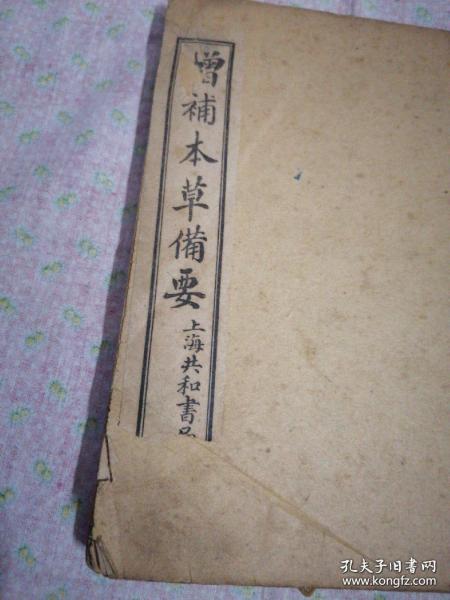 增補本草備要
上海共和書局
孔夫子旧书网
www.kongfz.com